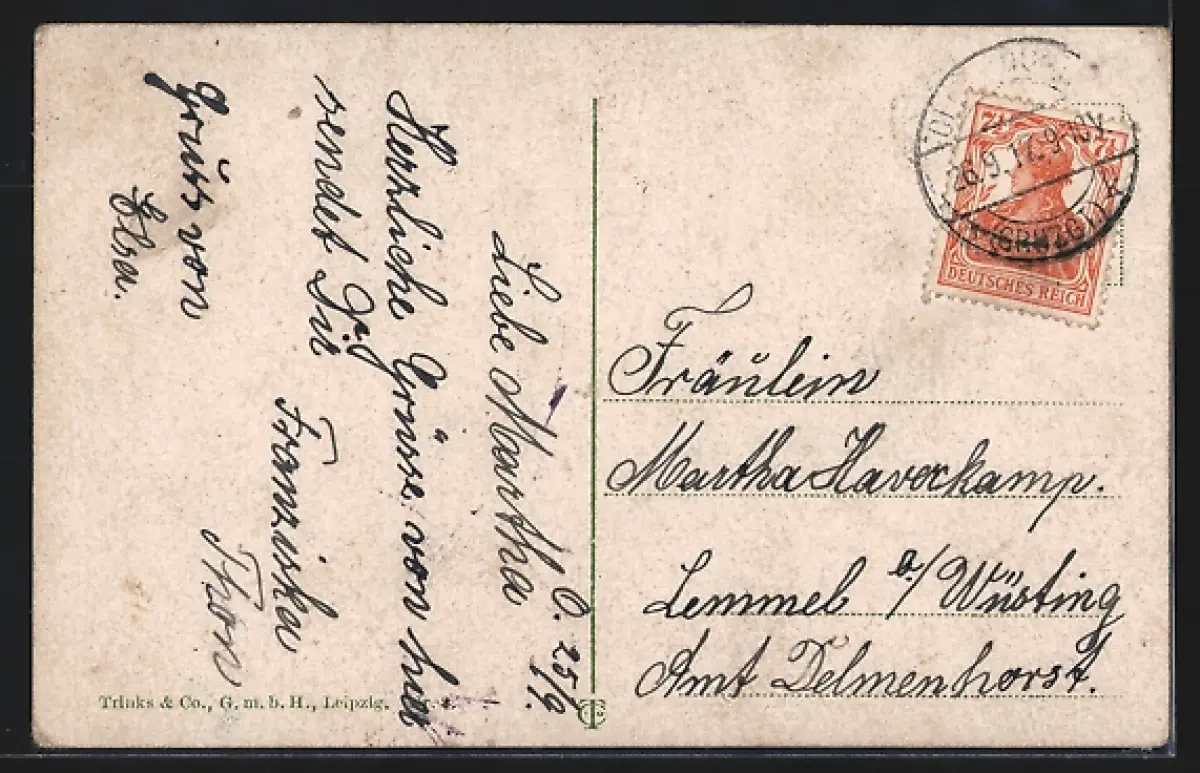 O. 25/9.
Liebe Martha
Herzliche Grüsse von hier
sendet Dir
Franziska
Thon
Gruß von
Elsa.
7½ 7½
26.9.17. 9-10V.
(GRHZGT)
DEUTSCHES REICH
Fräulein
Martha Haverkamp.
Lemmel b/ Wüsting
Amt Delmenhorst.
Trinks & Co., G. m. b. H., Leipzig.